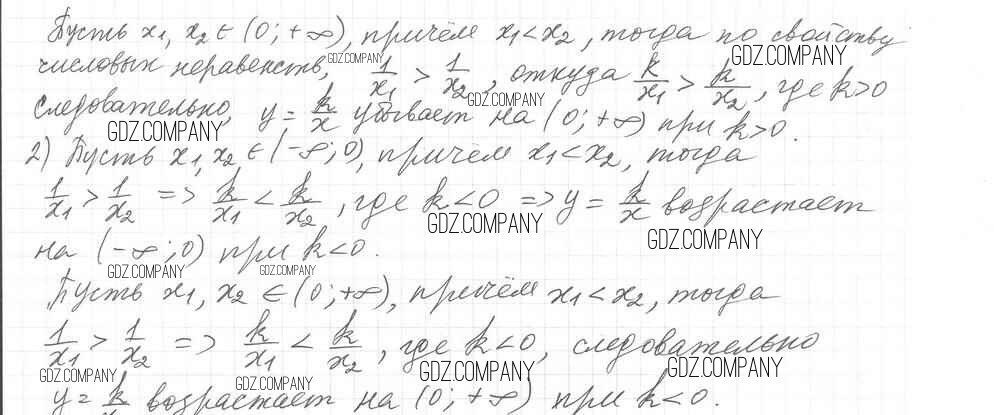 Пусть x₁, x₂ ∈ (0; +∞), причём x₁ < x₂, тогда по свойству
числовых неравенств, 1/x₁ > 1/x₂, откуда k/x₁ > k/x₂, где k>0
следовательно, y = k/x убывает на (0; +∞) при k>0.
2) Пусть x₁, x₂ ∈ (-∞; 0), причём x₁ < x₂, тогда
1/x₁ > 1/x₂ => k/x₁ < k/x₂, где k<0 => y = k/x возрастает
на (-∞; 0) при k<0.
Пусть x₁, x₂ ∈ (0; +∞), причём x₁ < x₂, тогда
1/x₁ > 1/x₂ => k/x₁ < k/x₂, где k<0, следовательно
y = k/x возрастает на (0; +∞) при k<0.
GDZ.COMPANY
GDZ.COMPANY
GDZ.COMPANY
GDZ.COMPANY
GDZ.COMPANY
GDZ.COMPANY
GDZ.COMPANY
GDZ.COMPANY
GDZ.COMPANY
GDZ.COMPANY
GDZ.COMPANY
GDZ.COMPANY